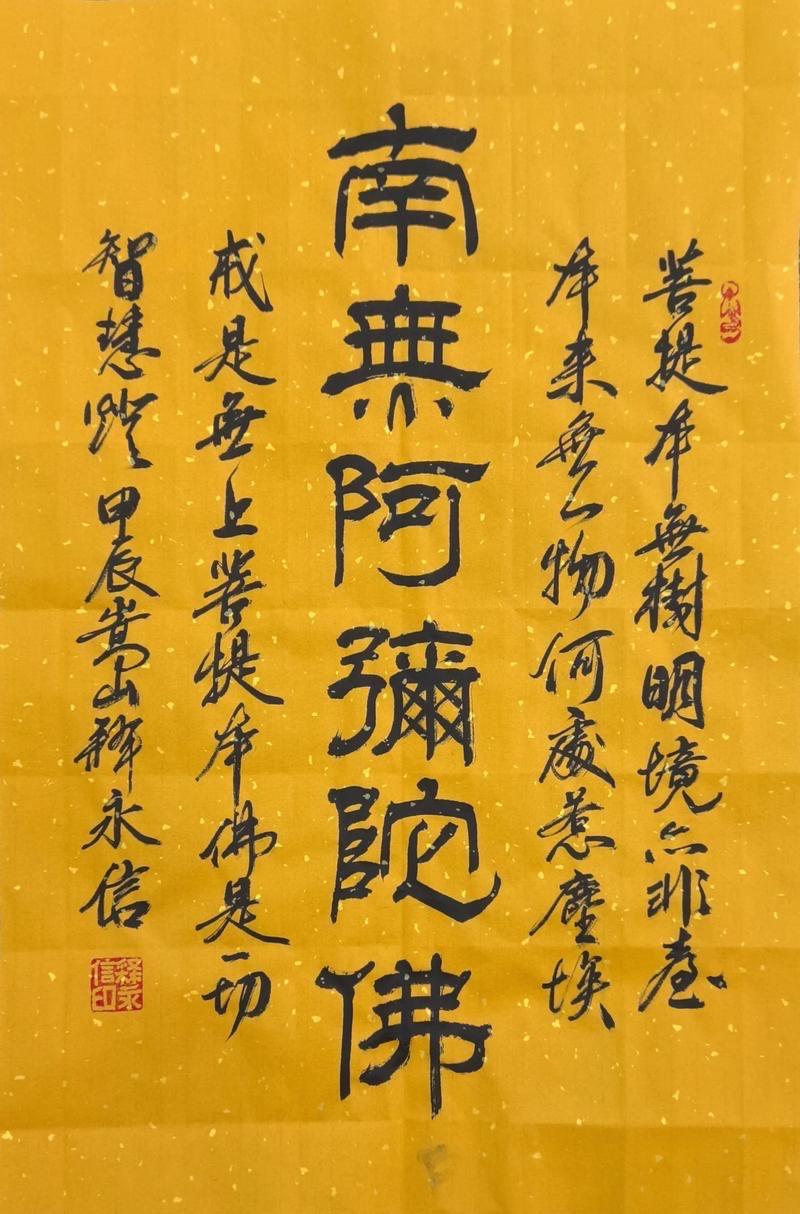 菩提本無樹明境亦非臺
本来無一物何處惹塵埃
南無阿彌陀佛
戒是無上菩提本佛是一切
智慧燈甲辰嵩山釋永信
釋永信印